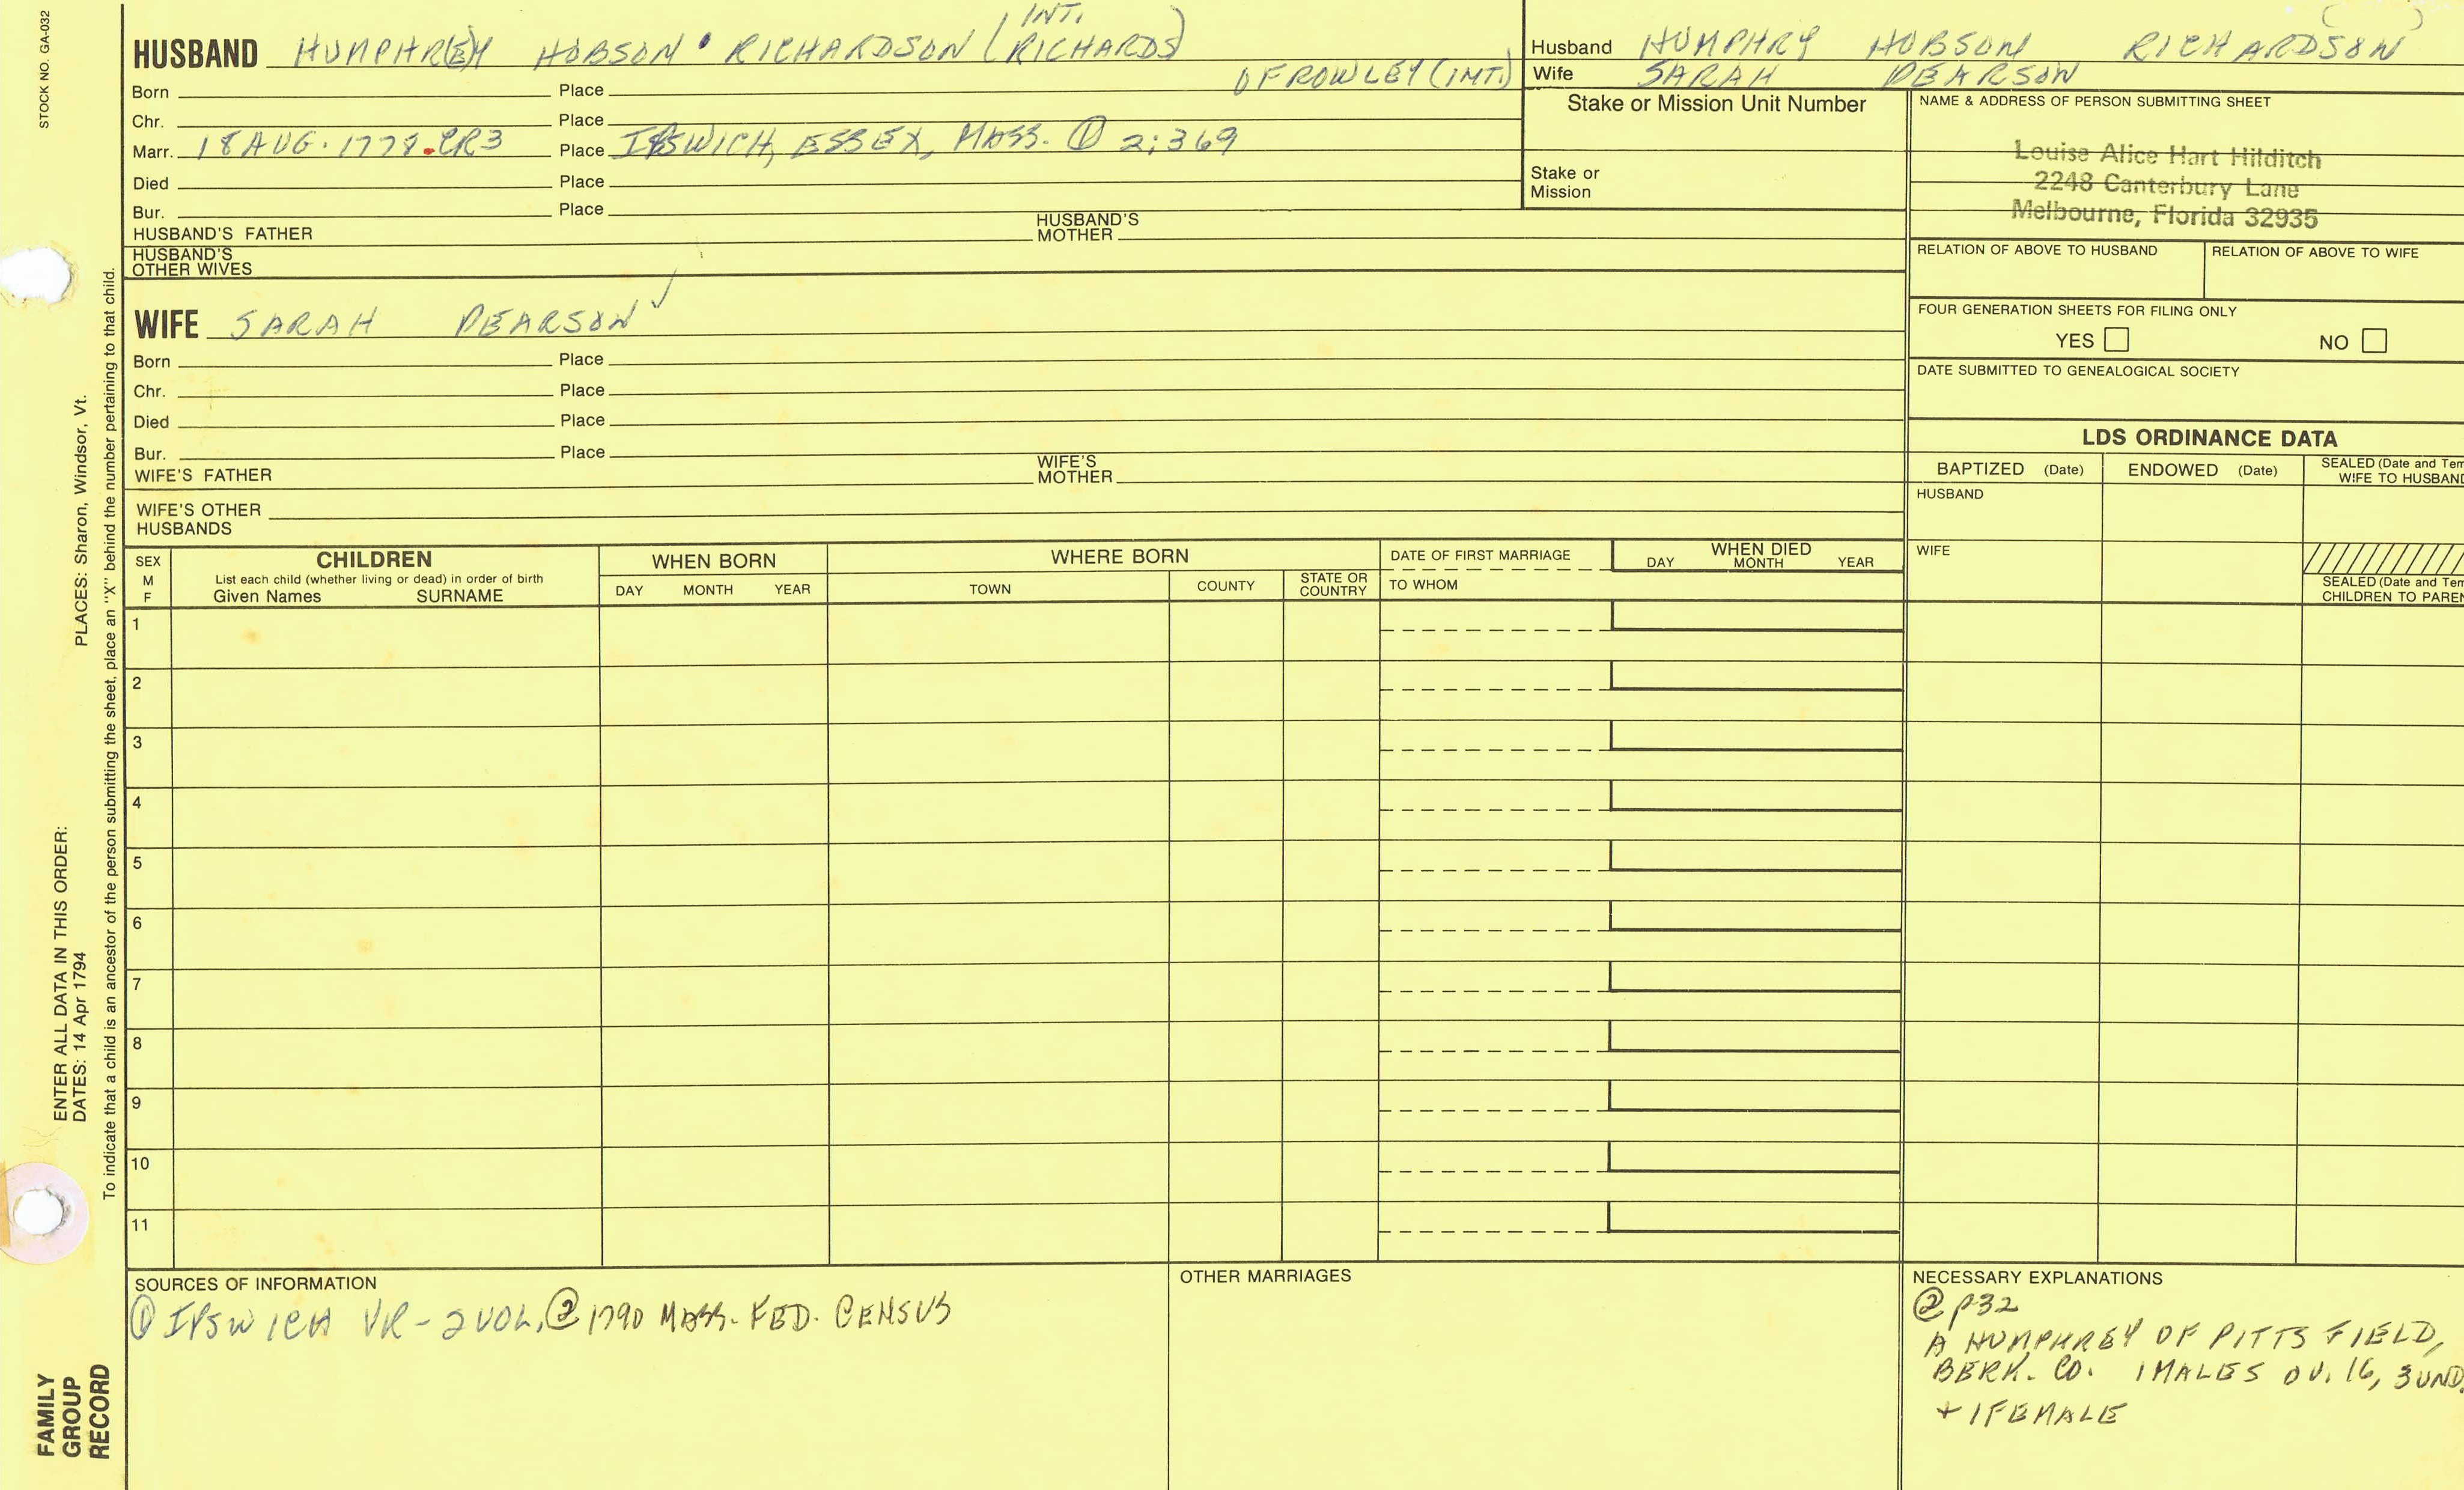 STOCK NO. GA-032
INT.
HUSBAND HUMPHR(E)Y HOBSON RICHARDSON (RICHARDS)
OF ROWLEY (INT.)
Born Place
Chr. Place
Marr. 18 AUG. 1778. CR3 Place IPSWICH, ESSEX, MASS. ① 2:369
Died Place
Bur. Place
HUSBAND'S FATHER HUSBAND'S MOTHER
HUSBAND'S OTHER WIVES
Husband HUMPHRY HOBSON RICHARDSON
Wife SARAH PEARSON
Stake or Mission Unit Number
Stake or
Mission
NAME & ADDRESS OF PERSON SUBMITTING SHEET
Louise Alice Hart Hilditch
2248 Canterbury Lane
Melbourne, Florida 32935
RELATION OF ABOVE TO HUSBAND RELATION OF ABOVE TO WIFE
FOUR GENERATION SHEETS FOR FILING ONLY
YES NO
DATE SUBMITTED TO GENEALOGICAL SOCIETY
WIFE SARAH PEARSON ✓
Born Place
Chr. Place
Died Place
Bur. Place
WIFE'S FATHER WIFE'S MOTHER
WIFE'S OTHER
HUSBANDS
LDS ORDINANCE DATA
BAPTIZED (Date) ENDOWED (Date) SEALED (Date and Tem
WIFE TO HUSBAND
HUSBAND
WIFE
SEALED (Date and Tem
CHILDREN TO PAREN
SEX
M
F
CHILDREN
List each child (whether living or dead) in order of birth
Given Names SURNAME
WHEN BORN
DAY MONTH YEAR
WHERE BORN
TOWN COUNTY STATE OR COUNTRY
DATE OF FIRST MARRIAGE
TO WHOM
WHEN DIED
DAY MONTH YEAR
1
2
3
4
5
6
7
8
9
10
11
SOURCES OF INFORMATION
① IPSWICH VR - 2 VOL, ② 1790 MASS. FED. CENSUS
OTHER MARRIAGES
NECESSARY EXPLANATIONS
② P32
A HUMPHREY OF PITTSFIELD,
BERK. CO. 1 MALES OV. 16, 3 UND.
+ 1 FEMALE
PLACES: Sharon, Windsor, Vt.
ENTER ALL DATA IN THIS ORDER:
DATES: 14 Apr 1794
To indicate that a child is an ancestor of the person submitting the sheet, place an "X" behind the number pertaining to that child.
FAMILY
GROUP
RECORD